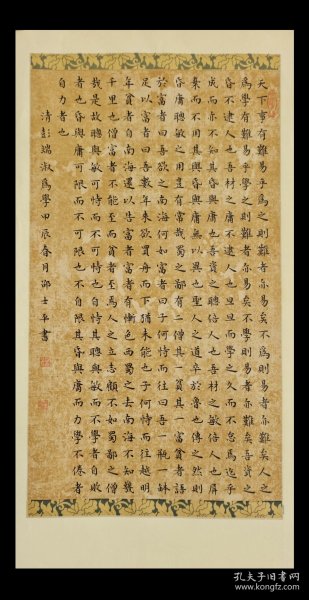 天下事有難易乎爲之則難者亦易矣不爲則易者亦難矣人之
爲學有難易乎學之則難者亦易矣不學則易者亦難矣吾資之
昏不逮人也吾材之庸不逮人也旦旦而學之久而不怠焉迄乎
成而亦不知其昏與庸也吾資之聰倍人也吾材之敏倍人也屏
棄而不用其與昏與庸無以異也聖人之道卒於魯也傳之然則
昏庸聰敏之用豈有常哉蜀之鄙有二僧其一貧其一富貧者語
於富者曰吾欲之南海何如富者曰子何恃而往曰吾一瓶一缽
足以富者曰吾數年來欲買舟而下猶未能也子何恃而往越明
年貧者自南海還以告富者富者有慚色西蜀之去南海不知幾
千里也僧富者不能至而貧者至焉人之立志顧不如蜀鄙之僧
哉是故聰與敏可恃而不可恃也自恃其聰與敏而不學者自敗
者也昏與庸可限而不可限也不自限其昏與庸而力學不倦者
自力者也
清彭端淑爲學甲辰春月邵士平書
孔夫子旧书网
www.kongfz.com